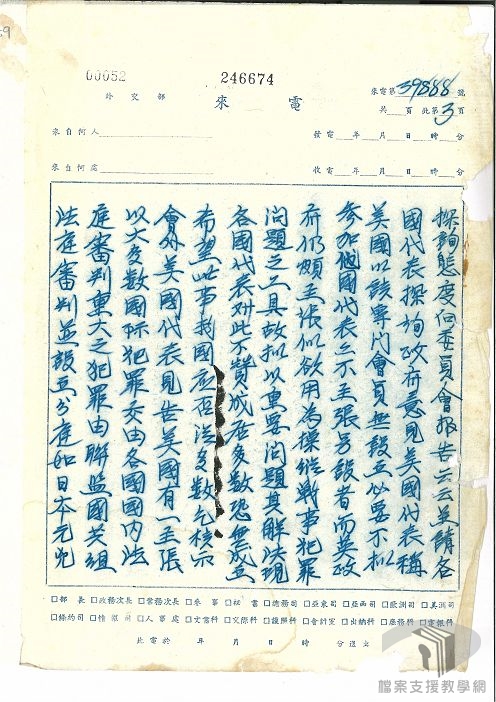 00052
246674
外交部
來電
來電第39888號
共 頁 此第3頁
來自何人
發電 年 月 日 時 分
來自何處
收電 年 月 日 時 分
探詢態度向委員會報告云云並請各
國代表探詢政府意見美國代表稱
美國以該專門會員無設立必要不擬
參加他國代表亦不主張另設者而英政
府仍頗主張似欲用為操縱戰事犯罪
問題之工具故擬以重要問題其解法現
各國代表對此不贊成居多數恐無成立
希望此事我國應否從多數乞核示
會外美國代表見告美國有一主張
以大多數國際犯罪交由各國國內法
庭審判重大之犯罪由聯盟國共組
法庭審判並設立分庭如日本元兇
□部長□政務次長□常務次長□參事□秘書□總務司□亞東司□亞西司□歐洲司□美洲司
□條約司□情報司□人事處□文書科□交際科□護照科□會計室□出納科□庶務科□電報科
此電於 年 月 日 時 分送出
檔案支援教學網